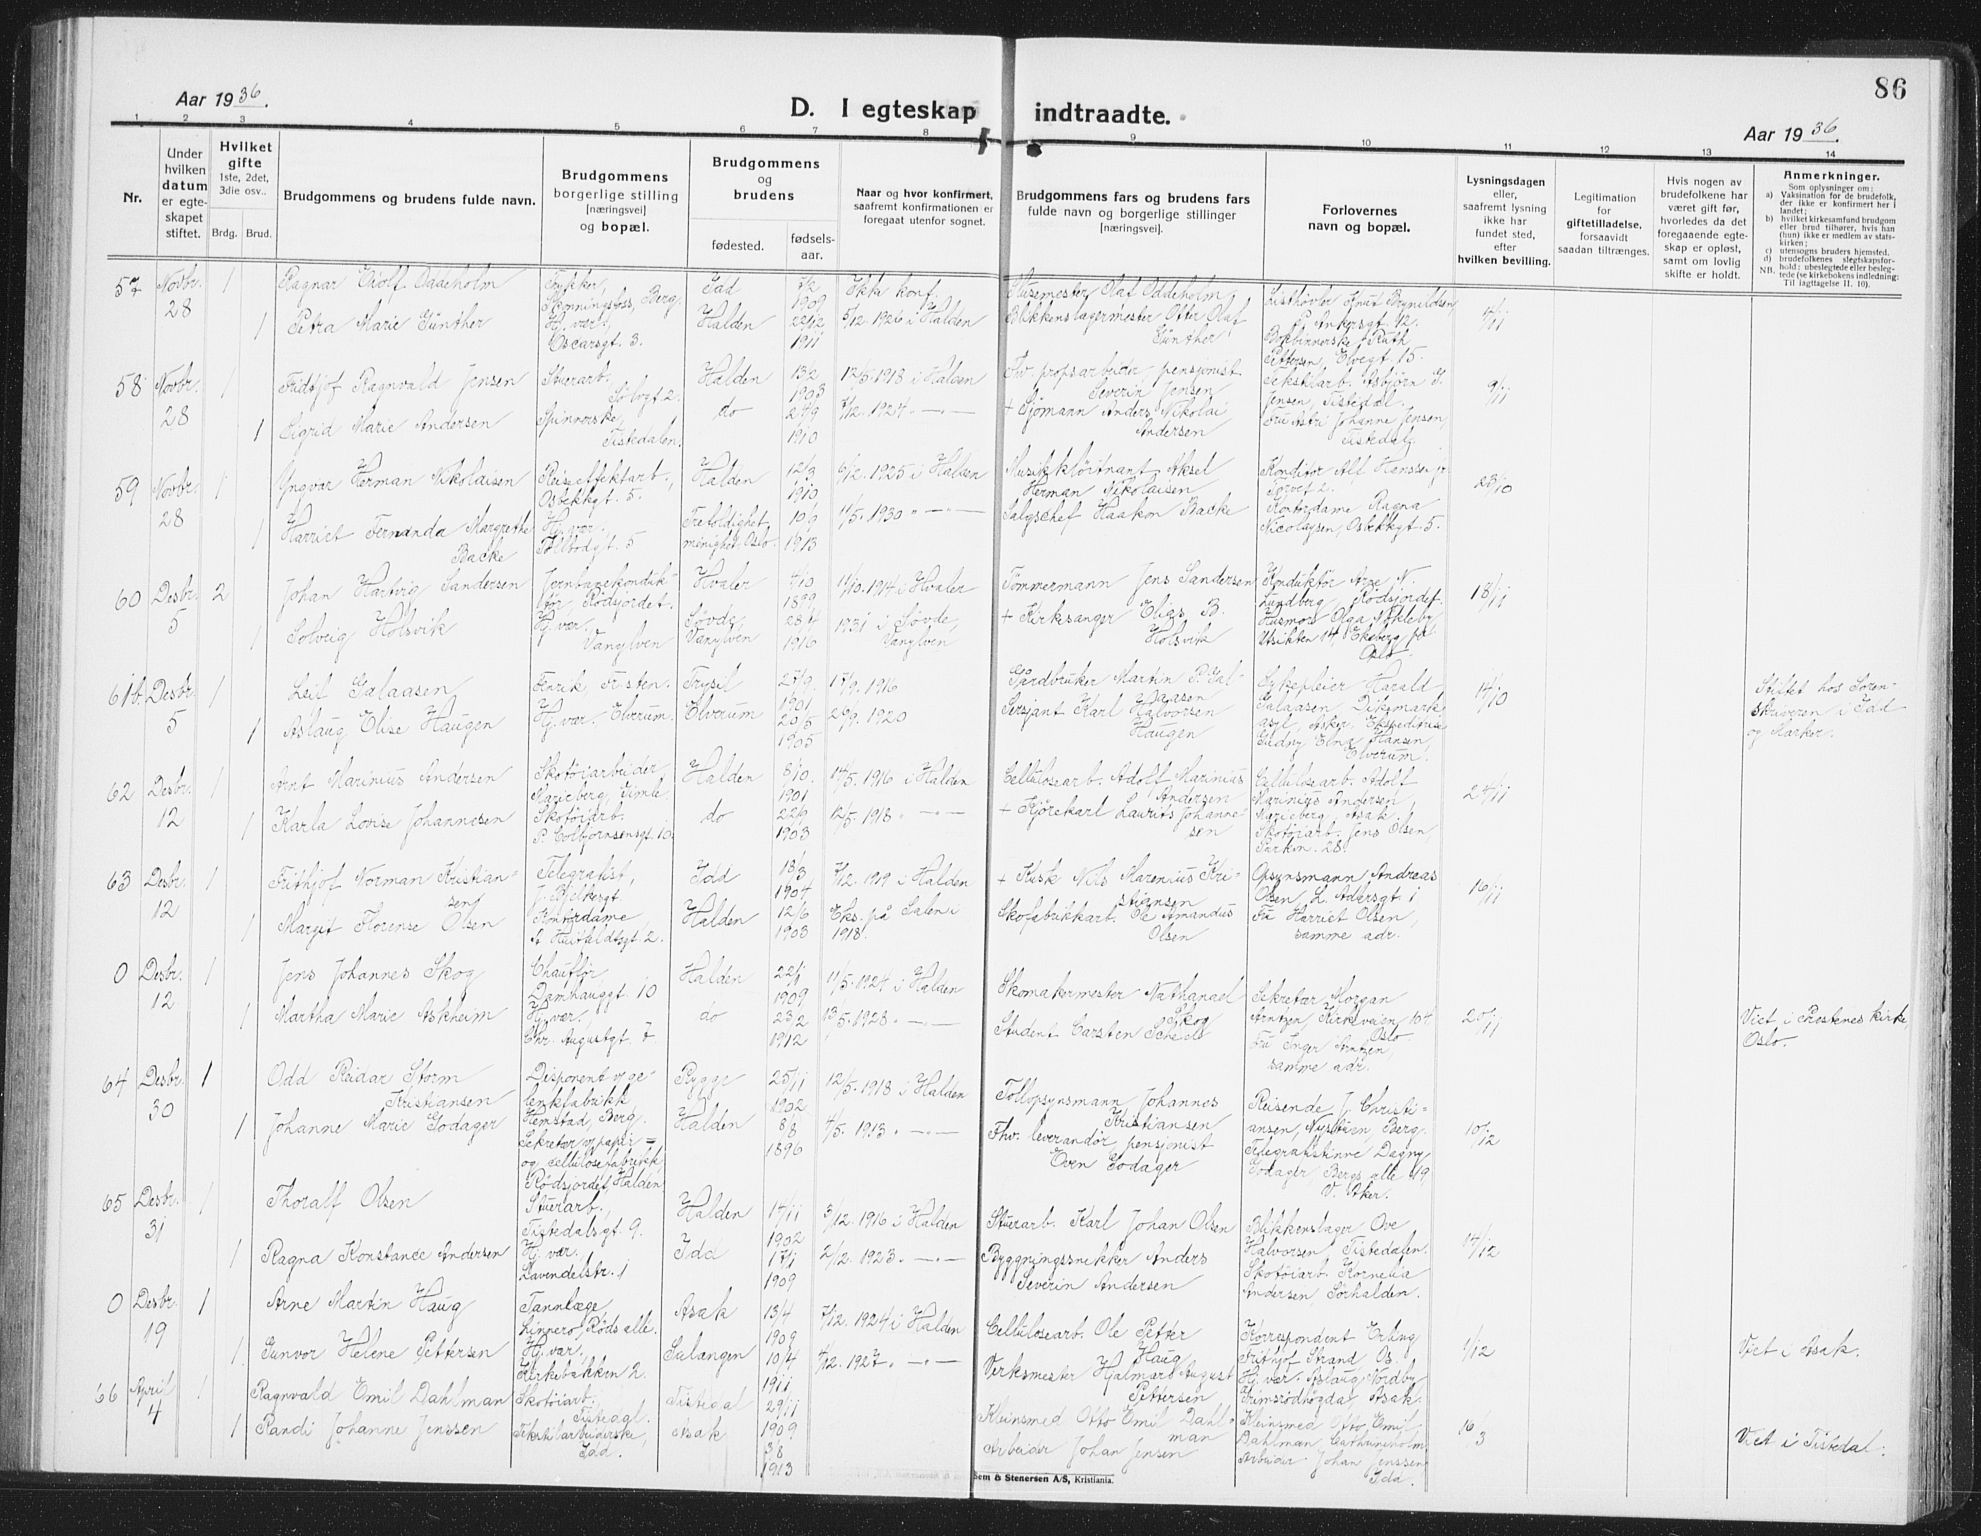 86
Aar 1936.
D. I egteskap indtraadte.
Aar 1936.
1 2 3 4 5 6 7 8 9 10 11 12 13 14
Nr.
Under hvilken datum er egteskapet stiftet.
Hvilket gifte 1ste, 2det, 3die osv..
Brdg. Brud.
Brudgommens og brudens fulde navn.
Brudgommens borgerlige stilling [næringsvei] og bopæl.
Brudgommens og brudens
fødested.
fødselsaar.
Naar og hvor konfirmert, saafremt konfirmationen er foregaat utenfor sognet.
Brudgommens fars og brudens fars fulde navn og borgerlige stillinger [næringsvei].
Forlovernes navn og bopæl.
Lysningsdagen eller, saafremt lysning ikke har fundet sted, efter hvilken bevilling.
Legitimation for giftetilladelse, forsaavidt saadan tiltrænges.
Hvis nogen av brudefolkene har været gift før, hvorledes da det foregaaende egteskap er opløst, samt om lovlig skifte er holdt.
Anmerkninger.
Som oplysninger om:
a) Vaksination for de brudefolk, der ikke er konfirmert her i landet;
b) hvilket kirkesamfund brudgom eller brud tilhører, hvis han (hun) ikke er medlem av statskirken;
c) utensogns bruders hjemsted.
d) brudefolkenes slegtskapsforhold: ubeslegtede eller beslegtede (se kirkebokens indledning:
NB. Til iagttagelse II. 10).
57 Novbr. 28 1 Ragnar Eidolf Oddeholm Trykker, Skonningsfoss, Berg Idd 7/2 1909 Ikke konf. Husemester Olaf Oddeholm Listhøvler Knut Brynildsen, P. Ankersgt. 12. 4/11
1 Petra Marie Günther Hj. vær. Oscarsgt. 3. Halden 22/12 1911 5/12. 1926 i Halden Blikkenslagermester Otter Olaf Günther Bobbinnerske Ruth Pettersen, Elvegt. 15.
58 Novbr. 28 1 Fridtjof Ragnvald Jensen Stuerarb. Sølvgt. 2. Halden 13/2 1903 12/5. 1918 i Halden Fhv. propsarbeider, pensjonist Severin Jensen Tekstilarb. Asbjørn G. Jensen, Tistedal. 9/11
1 Sigrid Marie Andersen Spinnerske, Tistedalen. do 24/9 1910 7/12. 1924 — „ — + Sjømann Anders Nikolai Andersen Fru Astri Johanne Jensen, Tistedal.
59 Novbr. 28 1 Yngvar Herman Nikolaisen Reiseeffektarb., Osbekkgt. 5. Halden 12/3 1910 6/12. 1925 i Halden Musikkløitnant Aksel Herman Nikolaisen Konditor Alf Hanssen jr. Torvet 2. 23/10
1 Harriet Fernanda Margrethe Backe Hj. vær. Tollbodgt. 5 Trefoldighet menighet, Oslo. 10/9 1913 11/5. 1930 „ — „ — Salgschef Haakon Backe Kontordame Ragna Nicolaysen, Osbekkgt. 5.
60 Desbr. 5 2 Johan Hartvig Sandersen Jernbanekonduktør, Rødsjordet. Hvaler 4/10 1899 11/10. 1914 i Hvaler Tømmermann Jens Sandersen Konduktør Arne N. Lundberg, Rødsjordet. 18/11
1 Solveig Holsvik Hj. vær. Vanylven Søvde, Vanylven 28/4 1916 1931 i Søvde, Vanylven + Kirksanger Elias B. Holsvik Husmor Olga Nøkleby Utsikten 14, Ekeberg pr. Oslo.
61 b. Desbr. 5 1 Leil Galaasen Fenrik Fristen. Trysil 27/9 1901 17/9. 1916 Gårdbruker Martin P. Galaasen Sykepleier Harald Galaasen, Dikemark asyl, Asker. 14/10 Stiftet hos Sorenskriveren i Idd og Marker.
1 Aslaug Elise Haugen Hj. vær. Elverum. Elverum 20/5 1905 26/9. 1920 Sersjant Karl Halvorsen Haugen Ekspeditrise Gudny Elna Hansen, Elverum.
62 Desbr. 12 1 Arnt Marinius Andersen Skotøiarbeider Marieberg, Timle. Halden 8/10. 1901 14/5. 1916 i Halden Cellulosearb. Adolf Marinius Andersen Cellulosearb. Adolf Marinius Andersen, Marieberg, Asak. 24/11
1 Karla Lovise Johannesen Skotøiarb. P. Colbjørnsensgt. 10. do 22/6 1903 12/5. 1918 „ — „ — + Kjørekarl Laurits Johannesen Skotøiarb. Jens Olsen, Parken 28.
63 Desbr. 12 1 Frithjof Norman Kristiansen Telegrafist, J. Bjelkesgt. Idd 18/3 1904 7/12. 1919 i Halden + Kusk Nils Marenius Kristiansen Opsynsmann Andreas Olsen, L. Adlersgt. 1 16/11
1 Margit Florense Olsen Kontordame, A. Huitfeldtsgt. 2. Halden 12/6 1903 Eks. på Salen i 1918. Skofabrikkarb. Ole Amandus Olsen Fru Harriet Olsen, samme adr.
0 Desbr. 12 1 Jens Johannes Skog Chauffør Damhauggt. 10 Halden 22/1 1909 11/5. 1924 i Halden Skomakermester Nathanael Skog Sekretær Morgan Arntzen, Kirkeveien 104 Oslo 20/11 Viet i Prestenes kirke, Oslo.
1 Martha Marie Askheim Hj. vær. Chr. Augustgt. 7 do 23/2 1912 13/5. 1928 „ — „ — Student Carsten Scheel Fru Inger Arntzen, samme adr.
64 Desbr. 30 1 Odd Reidar Storm Kristiansen Disponent v/ gelenkfabrikk Hemstad, Berg. Rygge 25/11 1902 12/5. 1918 i Halden Tollopsynsmann Johannes Kristiansen Reisende J. Christiansen, Nystuen, Berg. 10/12
1 Johanne Marie Godager Sekretær v/ papir- og cellulosefabrikk, Rødsjordet, Halden Halden 8/8 1896 4/5. 1913 „ — „ — Fhv. leverandør, pensjonist Even Godager Telegrafistinne Dagny Godager, Bergs alle 19 V. Aker.
65 Desbr. 31 1 Thoralf Olsen Stuerarb., Tistedalsgt. 9. Halden 14/11 1902 3/12. 1916 i Halden Stuerarb. Karl Johan Olsen Blikkenslager Ove Halvorsen, Tistedalen. 14/12
1 Ragna Konstance Andersen Hj. vær. Lavendelstr. 1 Idd 17/1 1909 2/12. 1923 „ — „ — Byggningssnekker Anders Severin Andersen Skotøiarb. Kornelia Andersen, Sørhalden.
0 Desbr. 19 1 Arne Martin Haug Tannlæge, Linnero, Røds alle. Asak 13/4 1909 7/12. 1924 i Halden Cellulosearb. Ole Petter Haug Korrespondent Erling Frithjof Strand, Os. 1/12 Viet i Asak.
1 Gunvor Helene Pettersen Hj. vær, Kirkebakken 2. Salangen 10/4 1911 4/12. 1927 „ — „ — Verksmester Hjalmar August Pettersen Hj. vær. Aslaug Nordby Grimsrødhøgda, Asak.
66 April 4 1 Ragnvald Emil Dahlman Skotøiarb. Tistedal. Tistedal 29/11 1909 Kleinsmed Otto Emil Dahlman Kleinsmed Otto Emil Dahlman, Cathrineholm. 16/3 Viet i Tistedal.
1 Randi Johanne Jenssen Tekstilarbeiderske, Idd. Asak 3/8 1913 Arbeider Johan Jensen Arbeider Johan Jenssen Idd.
Sem & Stenersen A/S, Kristiania.